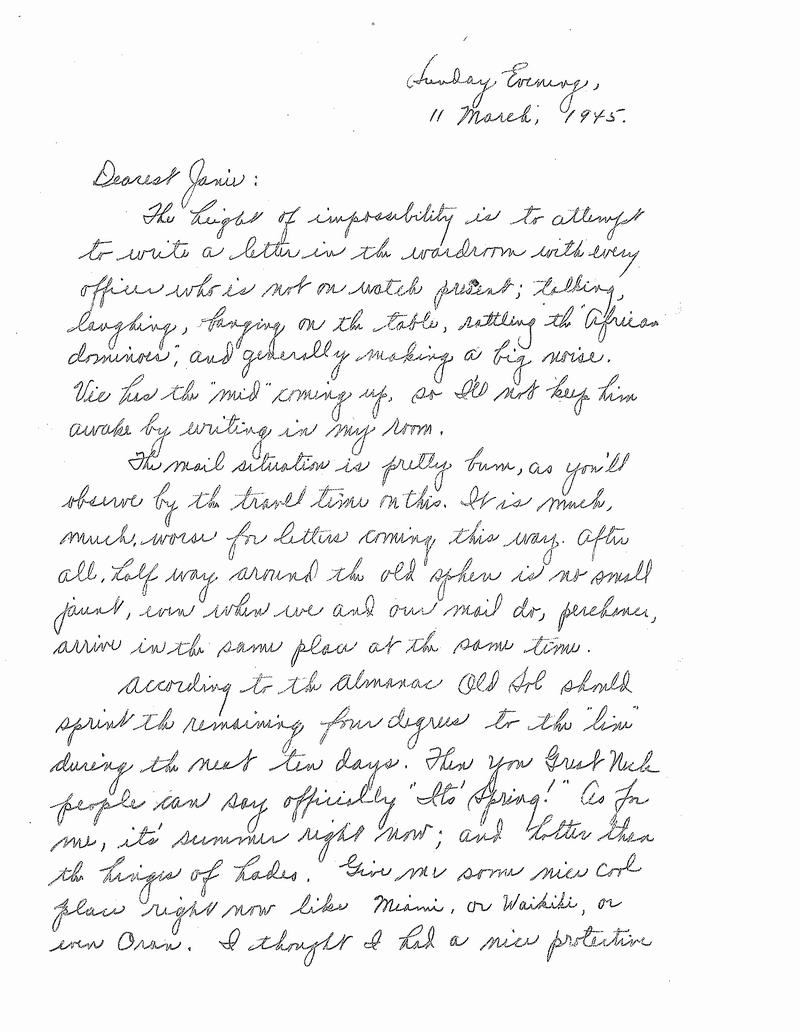 Sunday Evening,
11 March, 1945.
Dearest Janie:
The height of impossibility is to attempt
to write a letter in the wardroom with every
officer who is not on watch present; talking,
laughing, banging on the table, rattling the "African
dominoes", and generally making a big noise.
Vic has the "mid" coming up, so I'll not keep him
awake by writing in my room.
The mail situation is pretty bum, as you'll
observe by the travel time on this. It is much,
much, worse for letters coming this way. After
all, half way around the old sphere is no small
jaunt, even when we and our mail do, perchance,
arrive in the same place at the same time.
According to the Almanac Old Sol should
sprint the remaining four degrees to the "line"
during the next ten days. Then you Great Neck
people can say officially "Its' Spring!" As for
me, it's summer right now; and hotter than
the hinges of hades. Give me some nice cool
place right now like Miami, or Waikiki, or
even Oran. I thought I had a nice protective